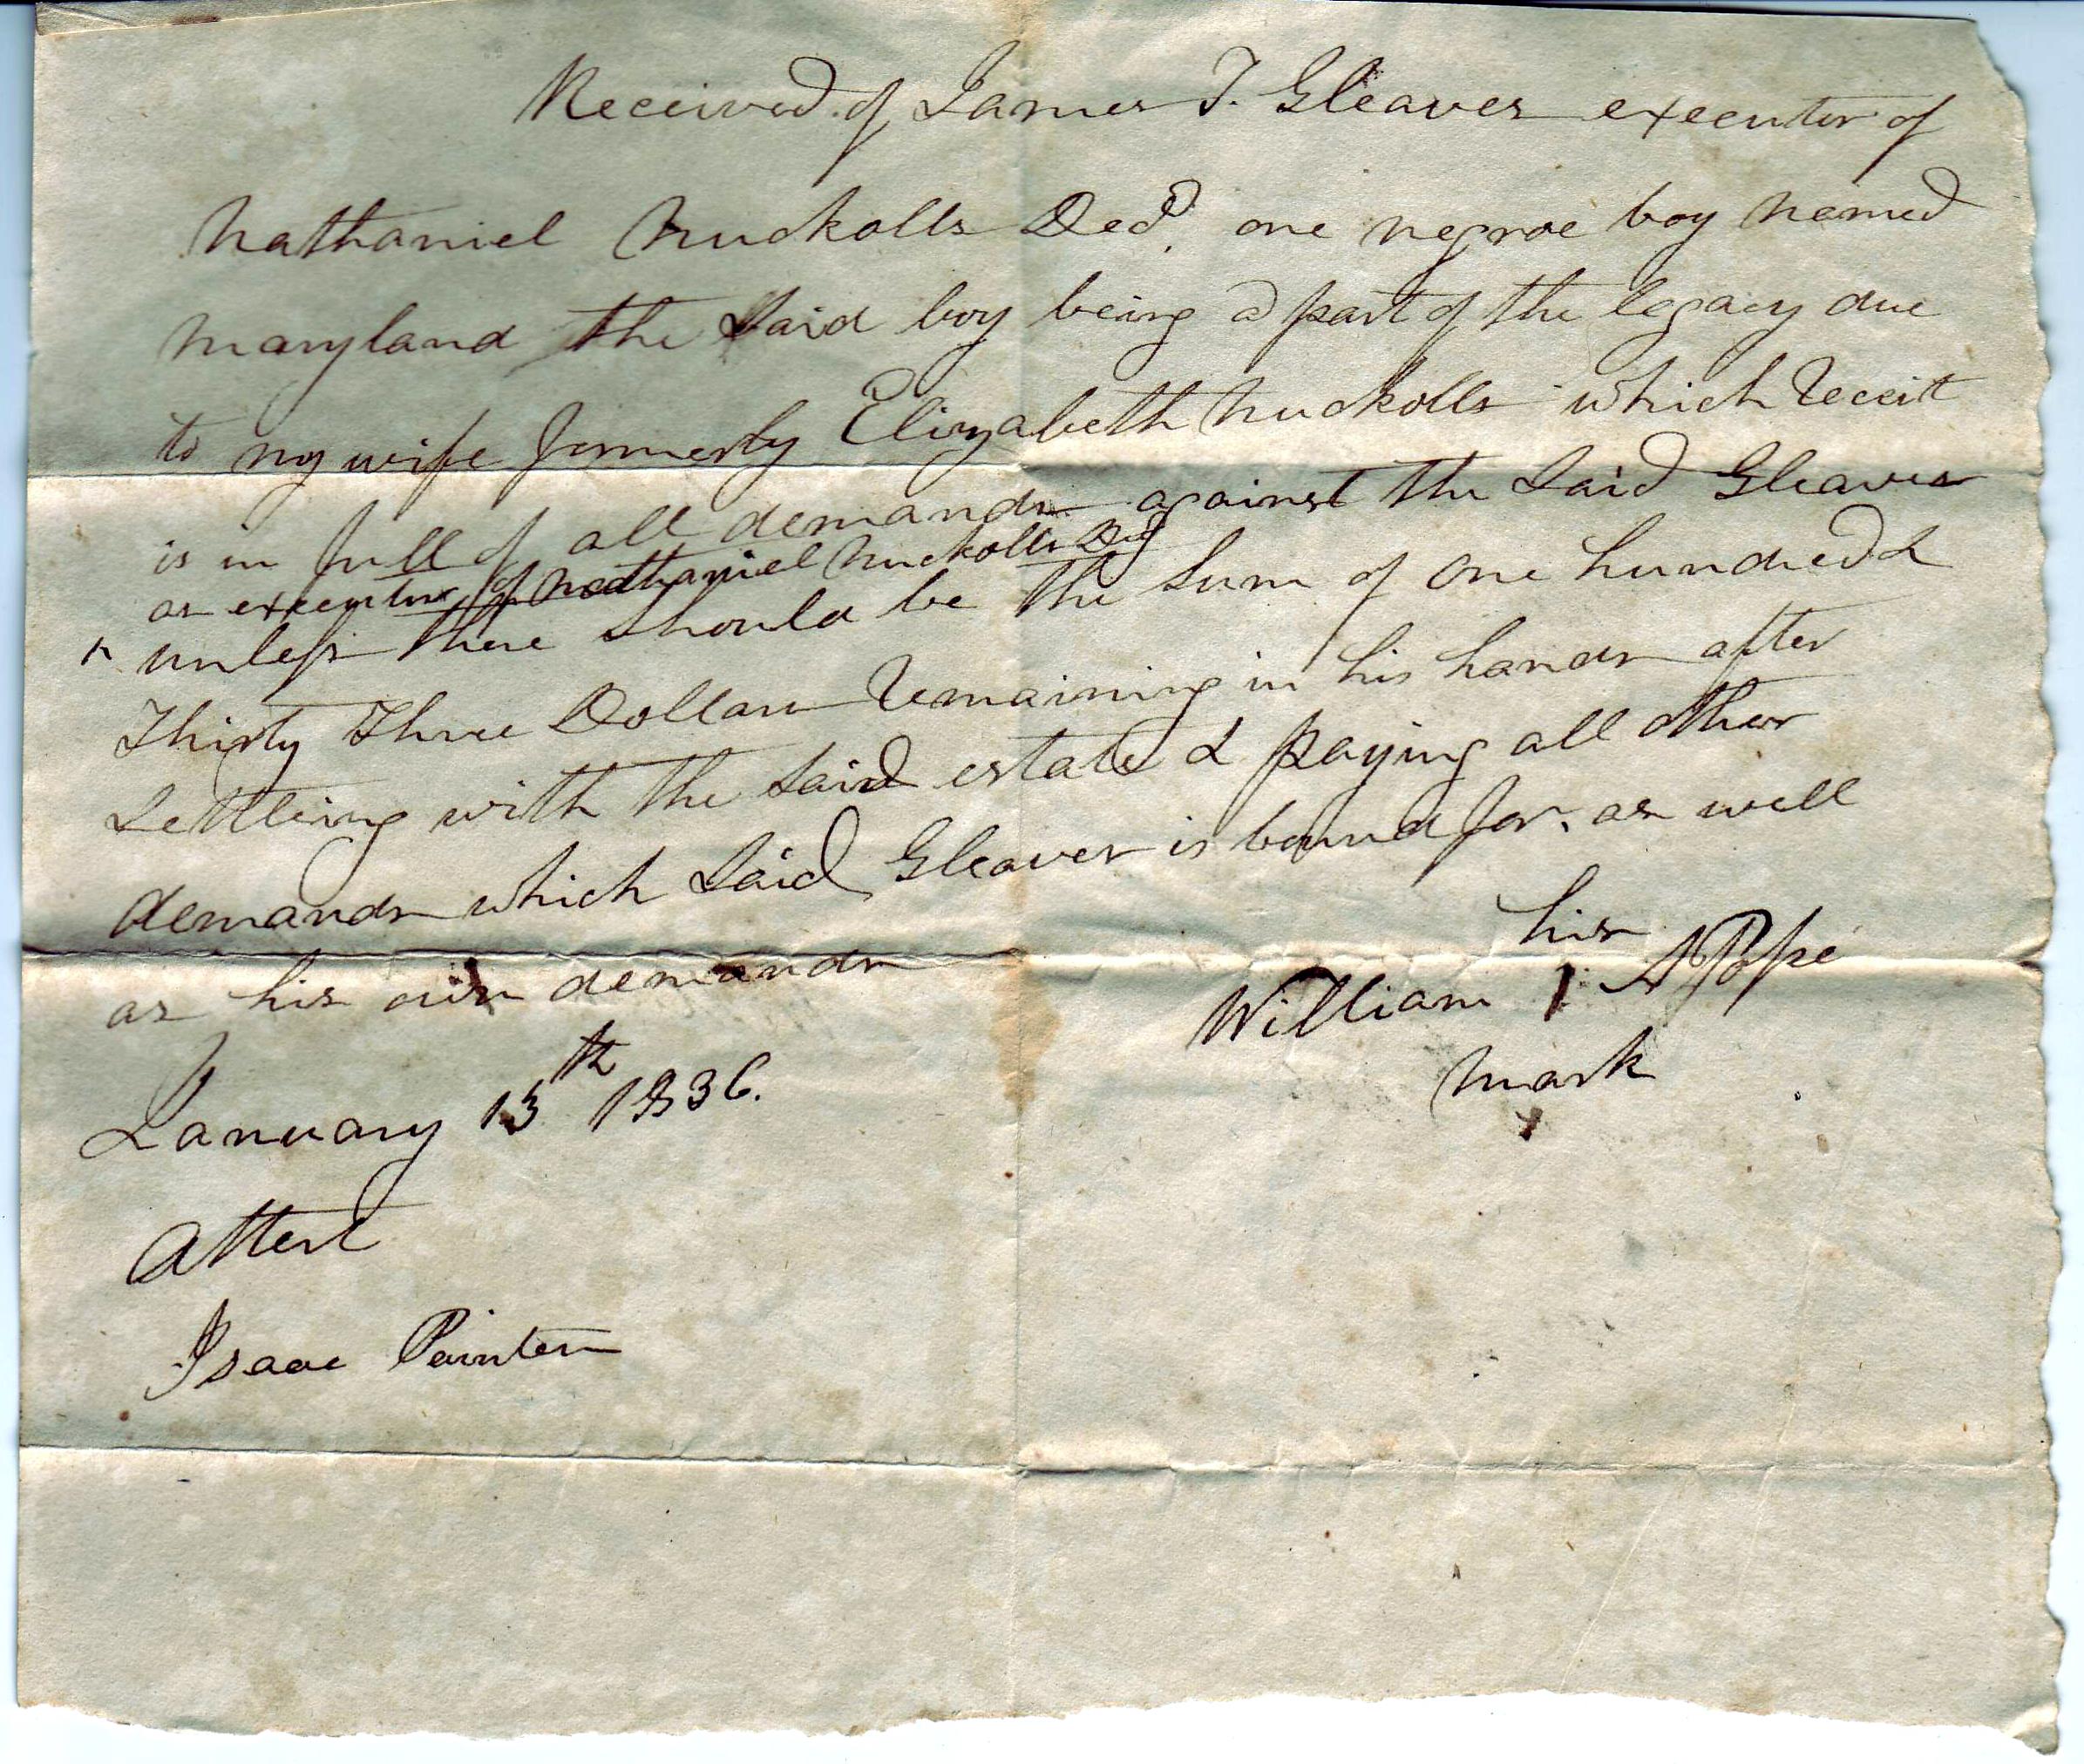 Received of James T. Gleaves executor of
Nathaniel Nuckolls Decd. one negroe boy named
Maryland the said boy being a part of the legacy due
to my wife formerly Elizabeth Nuckolls which receit
is in full of all demands against the said Gleaves
as executor of Nathaniel Nuckolls Decd
^ unless there should be the sum of one hundred &
Thirty Three Dollars remaining in his hands after
settleing with the said estate & paying all other
demands which said Gleaves is bound for, as well
as his own demands
his
William 1 A Pope
mark
January 13th 1836.
Attest
Isaac Painter